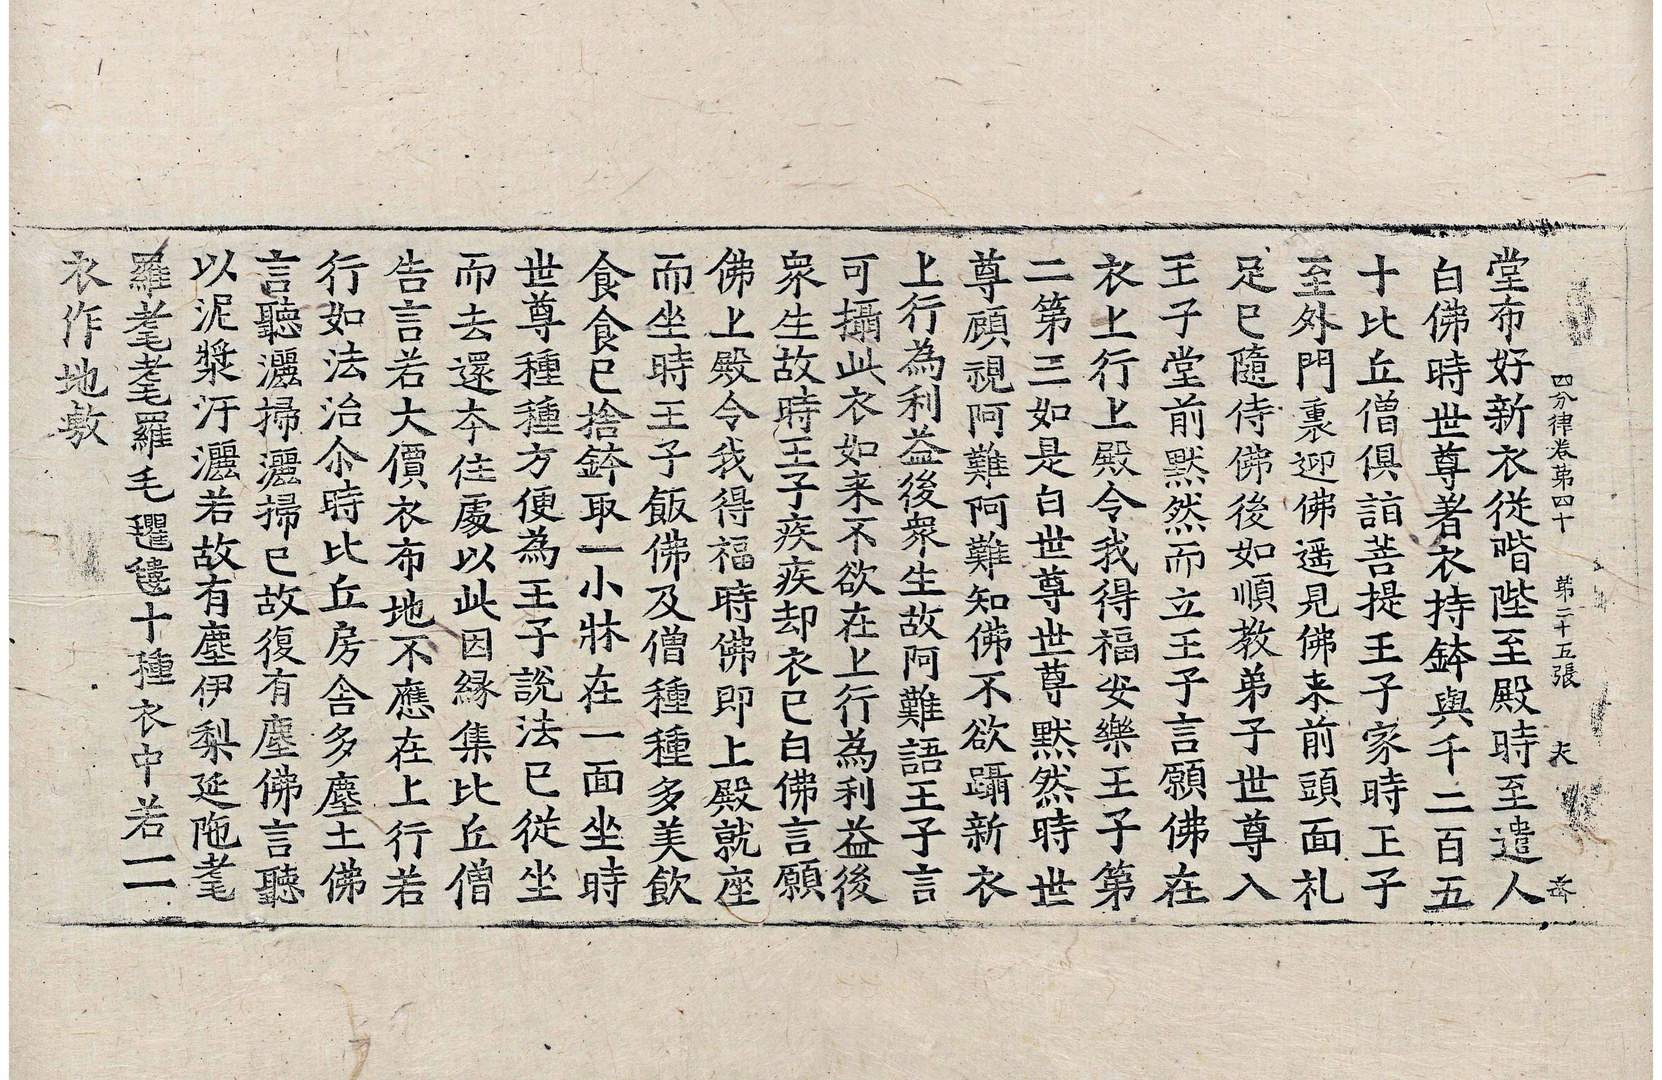 四分律卷第四十 第二十五張 夫
堂布好新衣從階陛至殿時至遣人
白佛時世尊著衣持鉢與千二百五
十比丘僧俱詣菩提王子家時王子
至外門裏迎佛遥見佛来前頭面礼
足已隨侍佛後如順教弟子世尊入
王子堂前黙然而立王子言願佛在
衣上行上殿令我得福安樂王子第
二第三如是白世尊世尊黙然時世
尊顧視阿難阿難知佛不欲躡新衣
上行為利益後衆生故阿難語王子言
可攝此衣如来不欲在上行為利益後
衆生故時王子疾疾却衣已白佛言願
佛上殿令我得福時佛即上殿就座
而坐時王子飯佛及僧種種多美飲
食食已捨鉢取一小牀在一面坐時
世尊種種方便為王子說法已從坐
而去還夲住處以此因縁集比丘僧
告言若大價衣布地不應在上行若
行如法治尒時比丘房舎多塵土佛
言聽灑掃灑掃已故復有塵佛言聽
以泥漿汙灑若故有塵伊梨延陁耄
羅耄耄羅毛氍㲣十種衣中若一一
衣作地敷